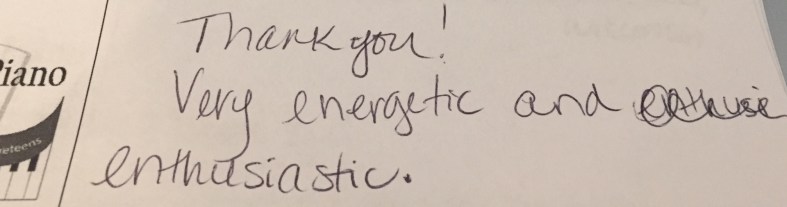 Thank you!
iano
Very energetic and
eteens
enthusiastic.